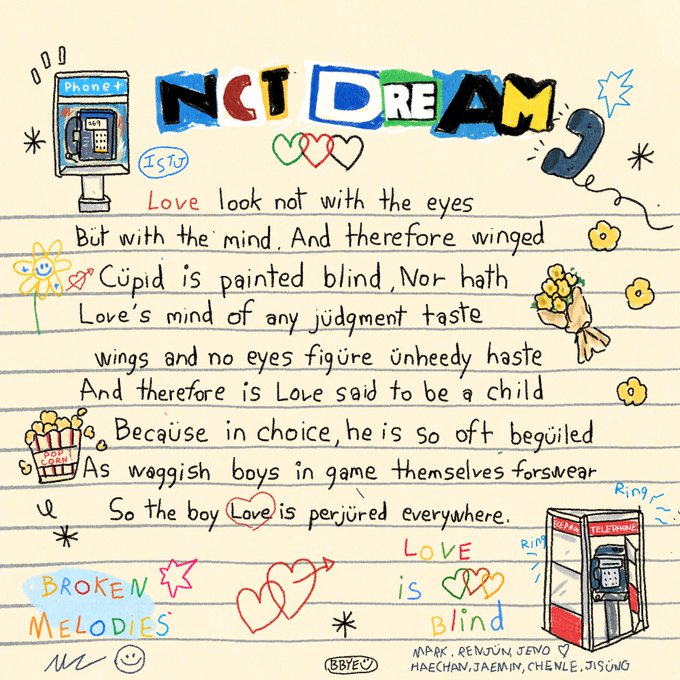 Phone+
NCT DREAM
ISTJ
Love look not with the eyes
Büt with the mind. And therefore winged
Cüpid is painted blind, Nor hath
Love's mind of any jüdgment taste
wings and no eyes figüre ünheedy haste
And therefore is Love said to be a child
Becaüse in choice, he is so oft begüiled
POP!
CORN!
As waggish boys in game themselves forswear
So the boy Love is perjüred everywhere.
Ring
TELEPHONE
Ring
LOVE
is
Blind
BROKEN
MELODIES
BBYE
MARK. RENJÜN, JENO
HAECHAN, JAEMIN, CHENLE, JISÜNG